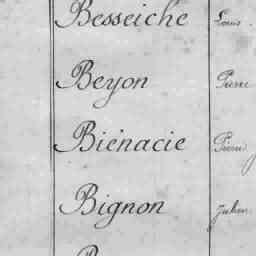 Besseiche Louis.
Beyon Pierre
Biénacie Pierre
Bignon Julien